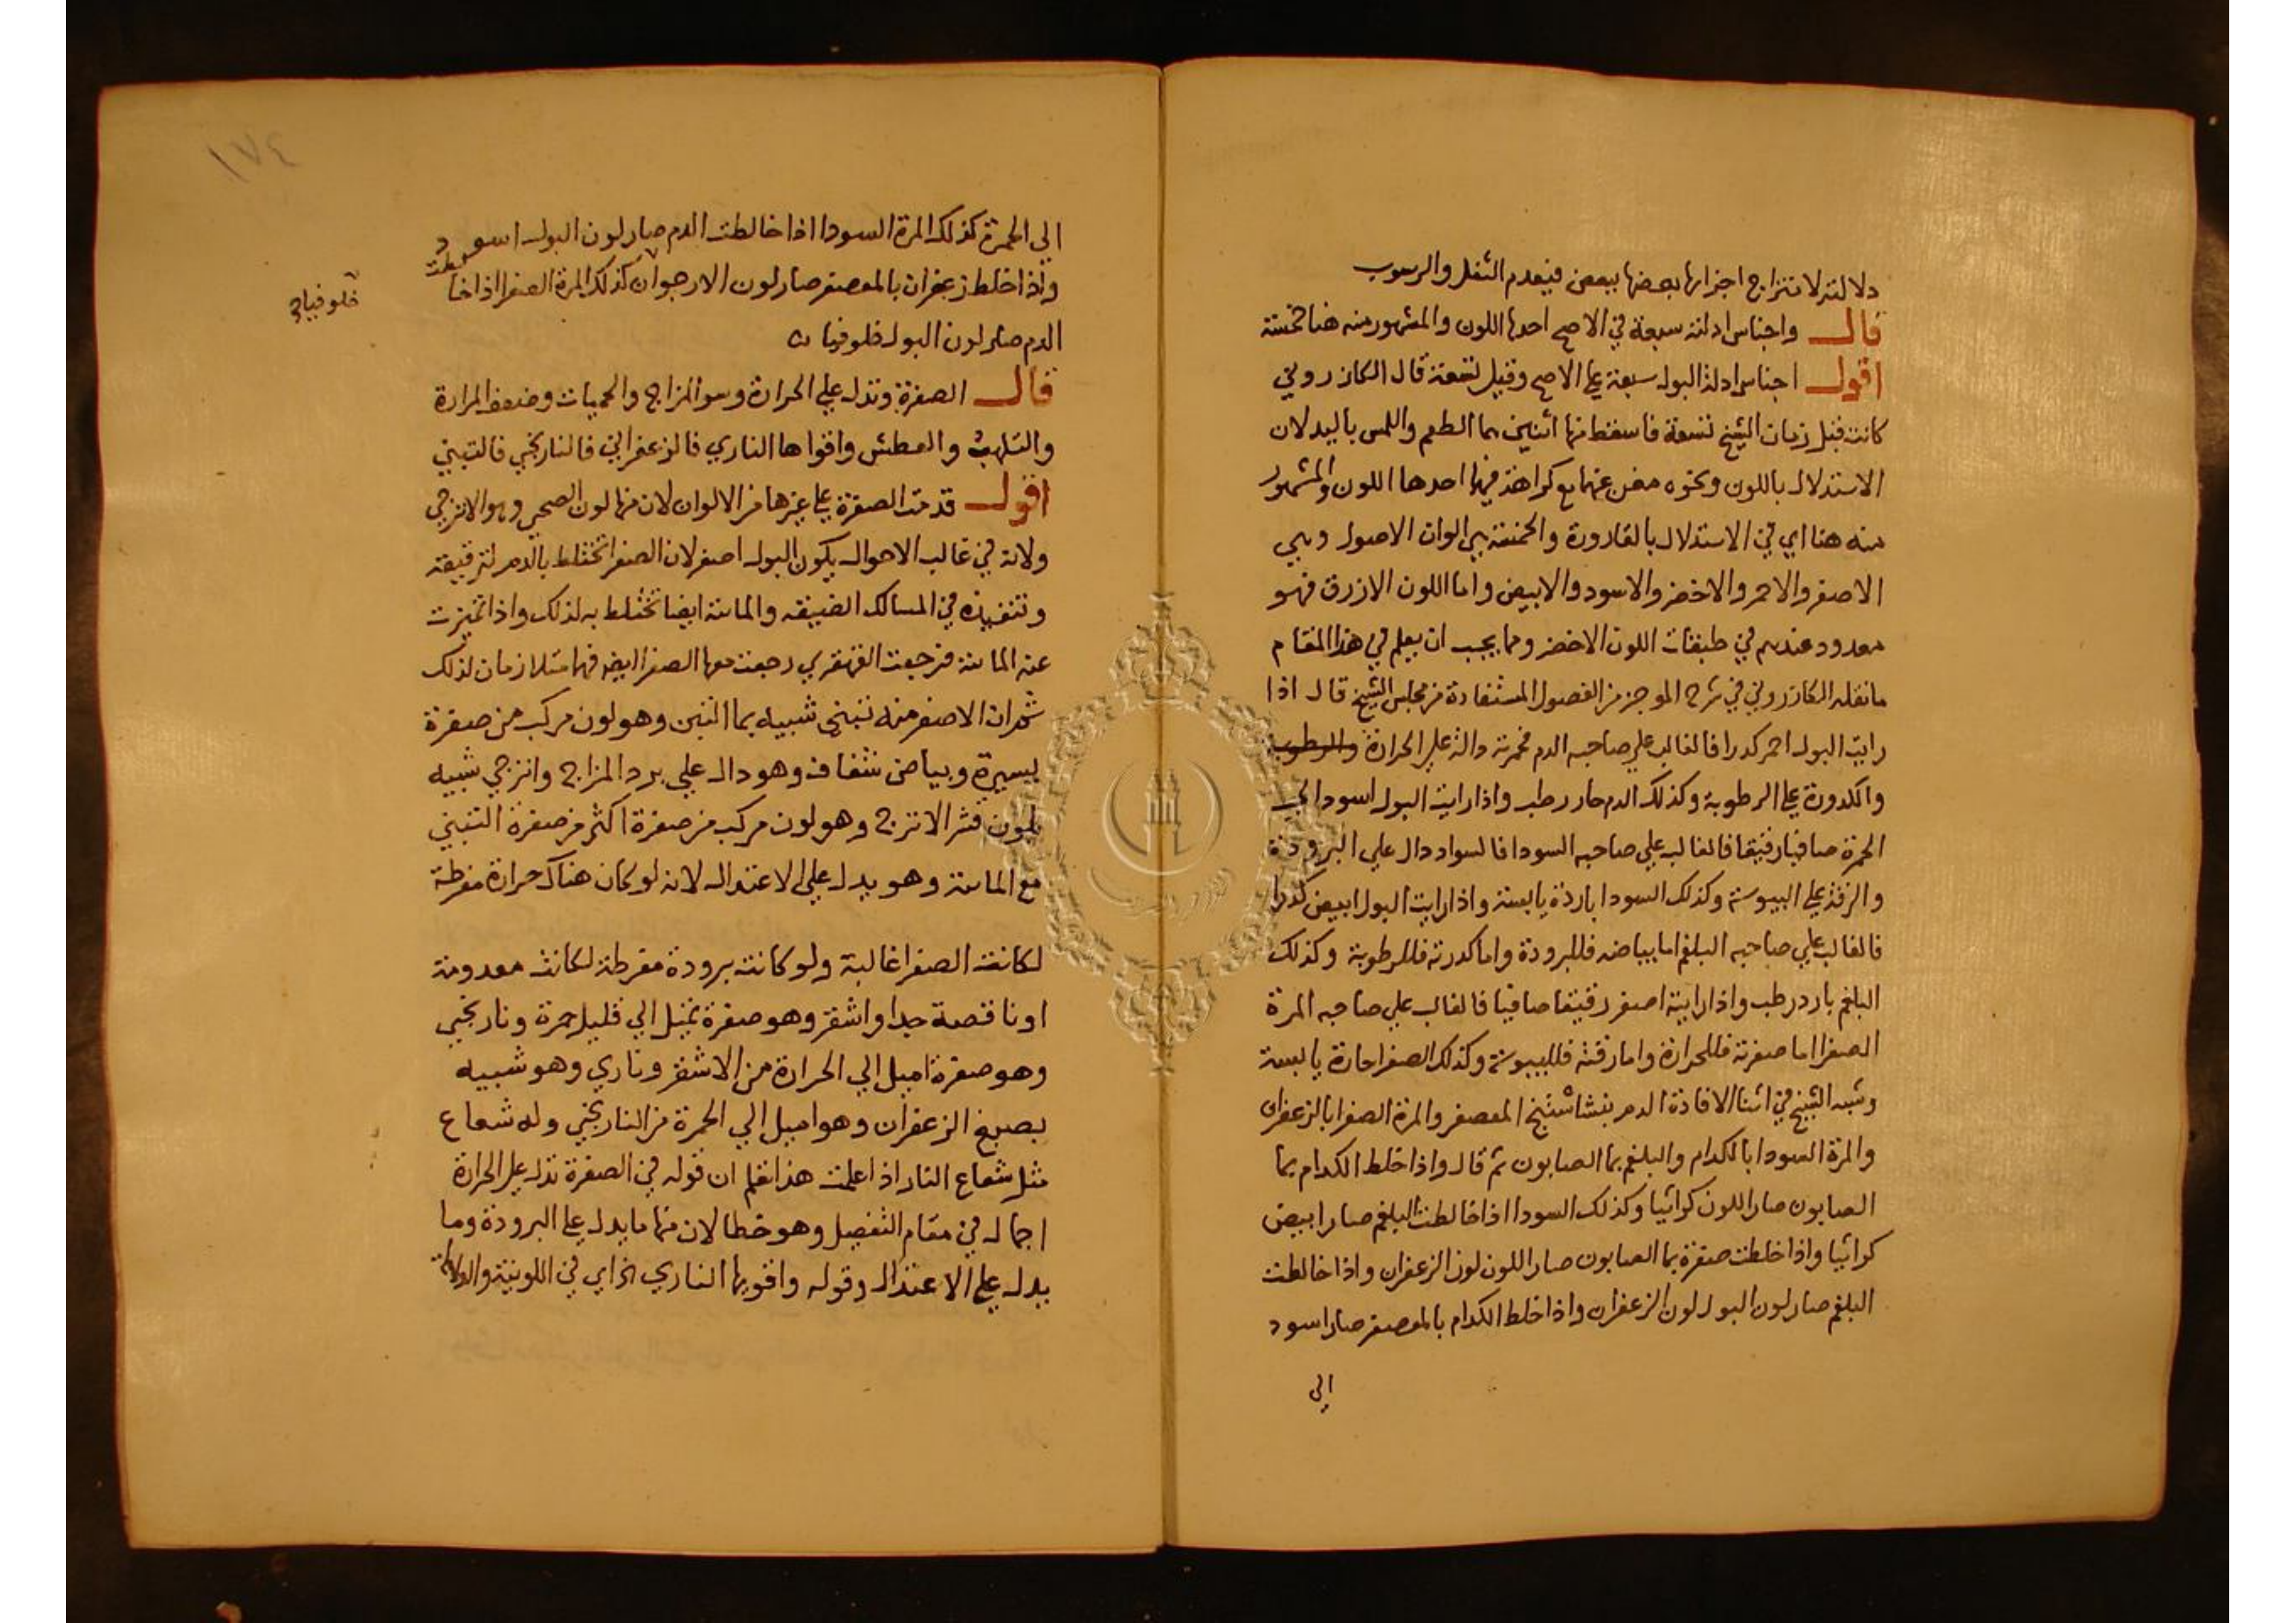 دلالته لامتزاج اجزائها بعضها ببعض فيعدم الثفل والرسوب
قال واجناس ادلته سبعة في الاصح احدها اللون والمشهور منه هنا خمسة
اقول اجناس ادلة البول سبعة علي الاصح وقيل تسعة قال الكازروني
كانت قبل زمان الشيخ تسعة فاسقط منها اثنين هما الطعم واللمس باليد لان
الاستدلال باللون ونحوه مغن عنهما مع كراهة فيهما احدها اللون والمشهور
منه هنا اي في الاستدلال بالقارورة والخمسة هي الوان الاصول وهي
الاصفر والاحمر والاخضر والاسود والابيض واما اللون الازرق فهو
معدود عندهم في طبقات اللون الاخضر ومما يجب ان يعلم في هذا المقام
ما نقله الكازروني في شرح الموجز من الفصول المستفادة من مجلس الشيخ قال اذا
رايت البول احمر كدرا فالغالب علي صاحبه الدم فحمرته دالة علي الحرارة والرطوبة
والكدورة علي الرطوبة وكذلك الدم حار رطب واذا رايت البول اسود الي
الحمرة صافيا رقيقا فالغالب علي صاحبه السودا فالسواد دال علي البرودة
والرقة علي اليبوسة وكذلك السودا باردة يابسة واذا رايت البول ابيض كدرا
فالغالب علي صاحبه البلغم اما بياضه فللبرودة واما كدرته فللرطوبة وكذلك
البلغم بارد رطب واذا رايته اصفر رقيقا صافيا فالغالب علي صاحبه المرة
الصفرا اما صفرته فللحرارة واما رقته فلليبوسة وكذلك الصفرا حارة يابسة
وشبه الشيخ في اثنا الافادة الدم بنشاستج المعصفر والمرة الصفرا بالزعفران
والمرة السودا بالكدام والبلغم بما الصابون ثم قال واذا خلط الكدام بما
الصابون صار اللون كراثيا وكذلك السودا اذا خالطت البلغم صار ابيض
كراثيا واذا خلطت صفرة بما الصابون صار اللون لون الزعفران واذا خالطت
البلغم صار لون البول لون الزعفران واذا خلط الكدام بالمعصفر صار اسود
الي
١٧٤
الي الحمرة كذلك المرة السودا اذا خالطت الدم صار لون البول اسود
واذا خلط زعفران بالمعصفر صار لون الارجوان كذلك المرة الصفرا اذا خالطت
الدم صار لون البول فلوفيا
قال الصفرة وتدل علي الحرارة وسو المزاج والحميات وضعف المرارة
والتلهب والعطش واقواها الناري فالزعفراني فالنارنجي فالتبني
اقول قدمت الصفرة علي غيرها من الالوان لان منها لون الصحي وهو الاترجي
ولانه في غالب الاحوال يكون البول اصفر لان الصفرا تختلط بالدم لترقيقه
وتنفيذه في المسالك الضيقه والمائية ايضا تختلط به لذلك واذا تميزت
عنه المائية فرجعت القهقري رجعت معها الصفرا ايضا فهما متلازمان لذلك
ثم ان الاصفر منه تبني شبيه بما التبن وهو لون مركب من صفرة
يسيرة وبياض شفاف وهو دال علي برد المزاج واترجي شبيه
بلون قشر الاترج وهو لون مركب من صفرة اكثر من صفرة التبني
مع المائية وهو يدل علي الاعتدال لانه لو كان هناك حرارة مفرطة
لكانت الصفرا غالبة ولو كانت برودة مفرطة لكانت معدومة
او ناقصة جدا واشقر وهو صفرة تميل الي قليل حمرة ونارنجي
وهو صفرة اميل الي الحرارة من الاشقر وناري وهو شبيه
بصبغ الزعفران وهو اميل الي الحمرة من النارنجي وله شعاع
مثل شعاع النار اذا علمت هذا تعلم ان قوله في الصفرة تدل علي الحرارة
اجمال في مقام التفصيل وهو خطا لان منها ما يدل علي البرودة وما
يدل علي الاعتدال وقوله واقويها الناري الخ اي في اللونية والدلالة